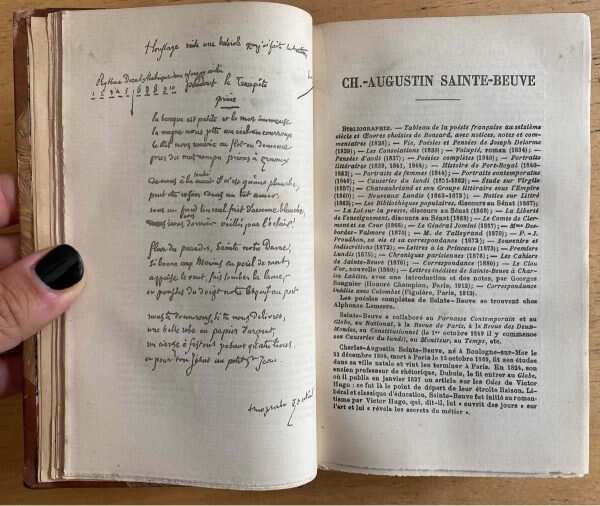 pendant la tempête
prière
la barque est petite et la mer immense
la vague nous jette aux cieux en courroux
le ciel nous renvoie au flot en démence
près du mât rompu prions à genoux
de nous à la tombe il n'est qu'une planche
peut être ce soir dans un lit amer
sous un froid linceul fait d'écume blanche
irons nous dormir veillés par l'éclair
fleur du paradis, sainte Notre Dame,
si bonne aux marins en péril de mort
appaise le vent, fais la lame,
et pousse du doigt notre esquif au port
nous te donnerons, si tu nous délivres,
une belle robe en papier d'argent,
un cierge à festons pesant quatre livres
et pour ton Jésus un petit St Jean
CH.-AUGUSTIN SAINTE-BEUVE
BIBLIOGRAPHIE. — Tableau de la poésie française au seizième
siècle et Œuvres choisies de Ronsard, avec notices, notes et com-
mentaires (1828); — Vie, Poésies et Pensées de Joseph Delorme
(1829); — Les Consolations (1830); — Volupté, roman (1834); —
Pensées d'août (1837); — Poésies complètes (1840); — Portraits
littéraires (1839, 1841, 1844); — Histoire de Port-Royal (1840-
1862); — Portraits de femmes (1844); — Portraits contemporains
(1846); — Causeries du lundi (1851-1862); — Étude sur Virgile
(1857); — Chateaubriand et son Groupe littéraire sous l'Empire
(1860); — Nouveaux Lundis (1863-1872); — Notice sur Littré
(1863); — Les Bibliothèques populaires, discours au Sénat (1867);
— La Loi sur la presse, discours au Sénat (1868); — La Liberté de
l'enseignement, discours au Sénat (1868); — Le Comte de Cler-
mont et sa Cour (1868); — Le Général Jomini (1869); — Mme Des-
bordes-Valmore (1870); — M. de Talleyrand (1870); — P.-J.
Proudhon, sa vie et sa correspondance (1872); — Souvenirs et
Indiscrétions (1872); — Lettres à la Princesse (1873); — Premiers
Lundis (1875); — Chroniques parisiennes (1876); — Les Cahiers
de Sainte-Beuve (1876); — Correspondance (1880); — Le Clou
d'or, nouvelle (1880); — Lettres inédites de Sainte-Beuve à Char-
les Labitte, avec une introduction et des notes, par Georges
Sangnier (Honoré Champion, Paris, 1912); — Correspondance
inédite avec Colombet (Figuière, Paris, 1912).
Les poésies complètes de Sainte-Beuve se trouvent chez
Alphonse Lemerre.
Sainte-Beuve a collaboré au Parnasse Contemporain et au
Globe, au National, à la Revue de Paris, à la Revue des Deux-
Mondes, au Constitutionnel (le 1er octobre 1849 il y commence
ses Causeries du lundi), au Moniteur, au Temps, etc.
Charles-Augustin Sainte-Beuve, né à Boulogne-sur-Mer le
23 décembre 1804, mort à Paris le 13 octobre 1869, fit ses études
dans sa ville natale et vint les terminer à Paris. En 1824, son
ancien professeur de rhétorique, Dubois, le fit entrer au Globe,
où il publia en janvier 1827 un article sur les Odes de Victor
Hugo : ce fut là le point de départ de leur étroite liaison. Li-
béral et classique d'éducation, Sainte-Beuve fut initié au roman-
tisme par Victor Hugo, qui, dit-il, lui « ouvrit des jours » sur
l'art et lui « révéla les secrets du métier ».